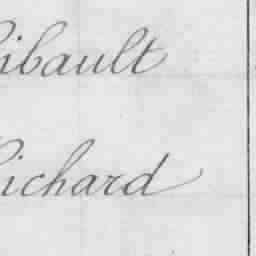 hibault
Richard